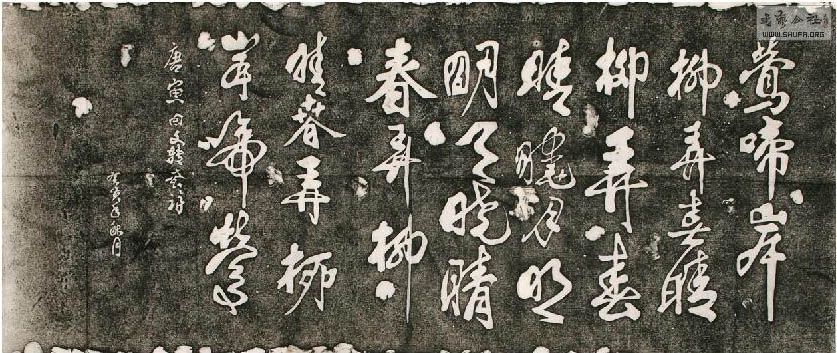 鶯啼岸
柳弄春晴
柳弄春
晴曉月明
明月曉晴
春弄柳
晴春弄柳
岸啼鶯
唐寅回文
年 月
WWW.SHUFA.ORG